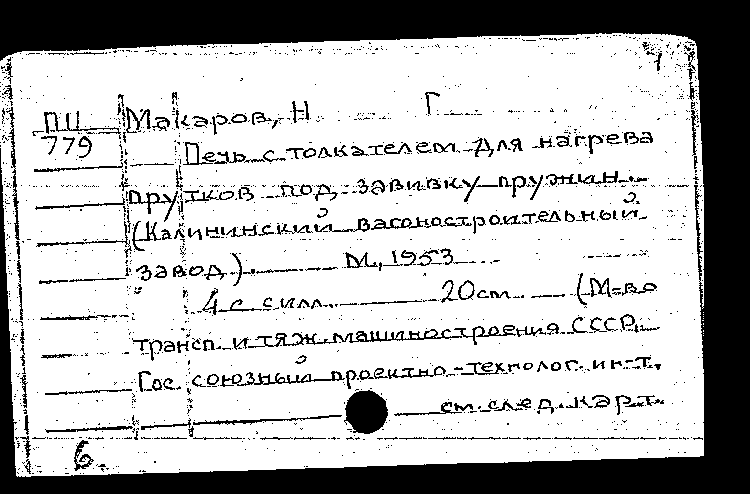 7
ПЦ Макаров, Н Г
779 Печь с толкателем для нагрева
прутков под завивку пружин.
(Калининский вагоностроительный
завод). М., 1953
4 с с илл. 20 см (М-во
трансп. и тяж. машиностроения СССР.
Гос. союзный проектно-технолог. ин-т.
см. след. карт.
6.